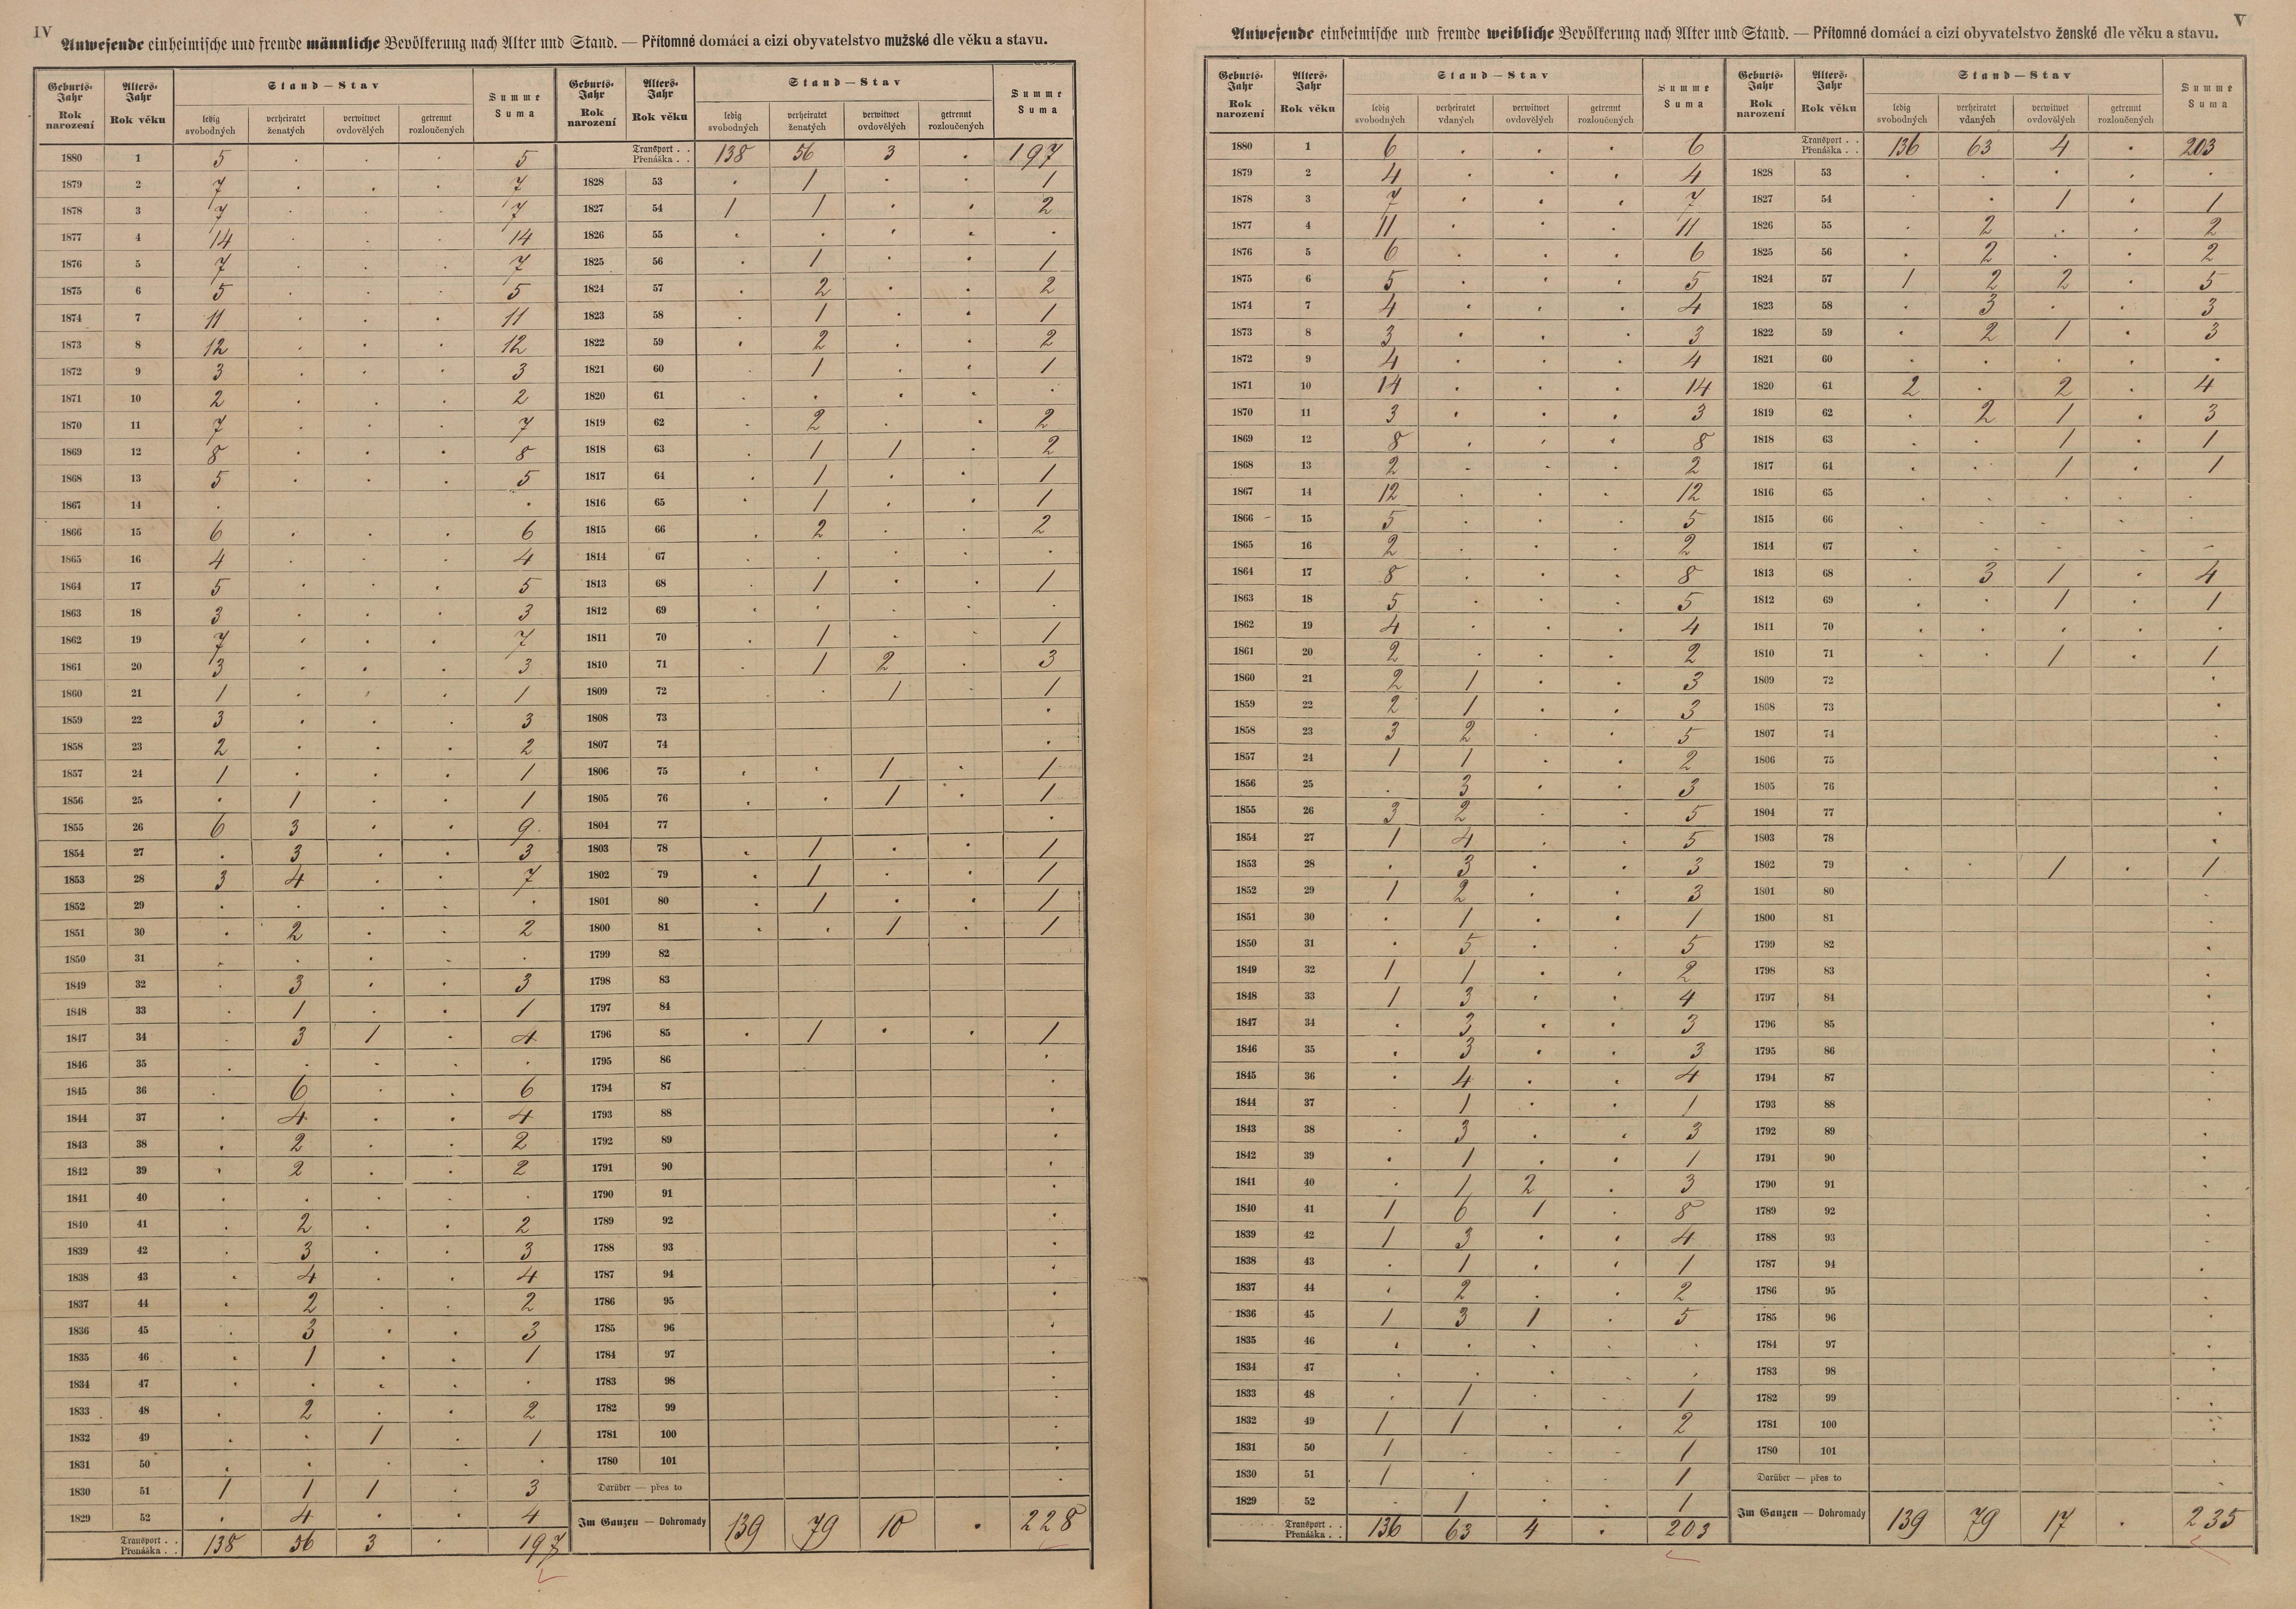 IV
Anwesende einheimische und fremde männliche Bevölkerung nach Alter und Stand. — Přítomné domácí a cizí obyvatelstvo mužské dle věku a stavu.
Geburts-Jahr Rok narození | Alters-Jahr Rok věku | Stand — Stav | Summe Suma
ledig svobodných | verheiratet ženatých | verwitwet ovdovělých | getrennt rozloučených
1880 1 5 . . . 5
1879 2 7 . . . 7
1878 3 7 . . . 7
1877 4 14 . . . 14
1876 5 7 . . . 7
1875 6 5 . . . 5
1874 7 11 . . . 11
1873 8 12 . . . 12
1872 9 3 . . . 3
1871 10 2 . . . 2
1870 11 7 . . . 7
1869 12 8 . . . 8
1868 13 5 . . . 5
1867 14 . .
1866 15 6 . . . 6
1865 16 4 . . . 4
1864 17 5 . . . 5
1863 18 3 . . . 3
1862 19 7 . . . 7
1861 20 3 . . . 3
1860 21 1 . . . 1
1859 22 3 . . . 3
1858 23 2 . . . 2
1857 24 1 . . . 1
1856 25 . 1 . . 1
1855 26 6 3 . . 9
1854 27 . 3 . . 3
1853 28 3 4 . . 7
1852 29 . . . . .
1851 30 . 2 . . 2
1850 31 . . . . .
1849 32 . 3 . . 3
1848 33 . 1 . . 1
1847 34 . 3 1 . 4
1846 35 . . . . .
1845 36 . 6 . . 6
1844 37 . 4 . . 4
1843 38 . 2 . . 2
1842 39 . 2 . . 2
1841 40 . . . . .
1840 41 . 2 . . 2
1839 42 . 3 . . 3
1838 43 . 4 . . 4
1837 44 . 2 . . 2
1836 45 . 3 . . 3
1835 46 . 1 . . 1
1834 47 . . . . .
1833 48 . 2 . . 2
1832 49 . . 1 . 1
1831 50 . . . . .
1830 51 1 1 1 . 3
1829 52 . 4 . . 4
Transport . . Přenáška . . 138 56 3 . 197
Geburts-Jahr Rok narození | Alters-Jahr Rok věku | Stand — Stav | Summe Suma
ledig svobodných | verheiratet ženatých | verwitwet ovdovělých | getrennt rozloučených
Transport . . Přenáška . . 138 56 3 . 197
1828 53 . 1 . . 1
1827 54 1 1 . . 2
1826 55 . . . . .
1825 56 . 1 . . 1
1824 57 . 2 . . 2
1823 58 . 1 . . 1
1822 59 . 2 . . 2
1821 60 . 1 . . 1
1820 61 . . . . .
1819 62 . 2 . . 2
1818 63 . 1 1 . 2
1817 64 . 1 . . 1
1816 65 . 1 . . 1
1815 66 . 2 . . 2
1814 67 . . . . .
1813 68 . 1 . . 1
1812 69 . . . . .
1811 70 . 1 . . 1
1810 71 . 1 2 . 3
1809 72 . 1 . 1
1808 73 .
1807 74 .
1806 75 . . 1 . 1
1805 76 . . 1 . 1
1804 77 .
1803 78 . 1 . . 1
1802 79 . 1 . . 1
1801 80 . 1 . . 1
1800 81 . . 1 . 1
1799 82
1798 83
1797 84
1796 85 . 1 . . 1
1795 86 .
1794 87 .
1793 88 .
1792 89 .
1791 90 .
1790 91 .
1789 92 .
1788 93 .
1787 94 .
1786 95 .
1785 96 .
1784 97 .
1783 98 .
1782 99 .
1781 100 .
1780 101 .
Darüber — přes to .
Im Ganzen — Dohromady 139 79 10 . 228
V
Anwesende einheimische und fremde weibliche Bevölkerung nach Alter und Stand. — Přítomné domácí a cizí obyvatelstvo ženské dle věku a stavu.
Geburts-Jahr Rok narození | Alters-Jahr Rok věku | Stand — Stav | Summe Suma
ledig svobodných | verheiratet vdaných | verwitwet ovdovělých | getrennt rozloučených
1880 1 6 . . . 6
1879 2 4 . . . 4
1878 3 7 . . . 7
1877 4 11 . . . 11
1876 5 6 . . . 6
1875 6 5 . . . 5
1874 7 4 . . . 4
1873 8 3 . . . 3
1872 9 4 . . . 4
1871 10 14 . . . 14
1870 11 3 . . . 3
1869 12 8 . . . 8
1868 13 2 . . . 2
1867 14 12 . . . 12
1866 15 5 . . . 5
1865 16 2 . . . 2
1864 17 8 . . . 8
1863 18 5 . . . 5
1862 19 4 . . . 4
1861 20 2 . . . 2
1860 21 2 1 . . 3
1859 22 2 1 . . 3
1858 23 3 2 . . 5
1857 24 1 1 . . 2
1856 25 . 3 . . 3
1855 26 3 2 . . 5
1854 27 1 4 . . 5
1853 28 . 3 . . 3
1852 29 1 2 . . 3
1851 30 . 1 . . 1
1850 31 . 5 . . 5
1849 32 1 1 . . 2
1848 33 1 3 . . 4
1847 34 . 3 . . 3
1846 35 . 3 . . 3
1845 36 . 4 . . 4
1844 37 . 1 . . 1
1843 38 . 3 . . 3
1842 39 . 1 . . 1
1841 40 . 1 2 . 3
1840 41 1 6 1 . 8
1839 42 1 3 . . 4
1838 43 . 1 . . 1
1837 44 . 2 . . 2
1836 45 1 3 1 . 5
1835 46 . . . . .
1834 47 . . . . .
1833 48 . 1 . . 1
1832 49 1 1 . . 2
1831 50 1 . . . 1
1830 51 1 . . . 1
1829 52 . 1 . . 1
Transport . . Přenáška . . 136 63 4 . 203
Geburts-Jahr Rok narození | Alters-Jahr Rok věku | Stand — Stav | Summe Suma
ledig svobodných | verheiratet vdaných | verwitwet ovdovělých | getrennt rozloučených
Transport . . Přenáška . . 136 63 4 . 203
1828 53 . . . . .
1827 54 . . 1 . 1
1826 55 . 2 . . 2
1825 56 . 2 . . 2
1824 57 1 2 2 . 5
1823 58 . 3 . . 3
1822 59 . 2 1 . 3
1821 60 . . . . .
1820 61 2 . 2 . 4
1819 62 . 2 1 . 3
1818 63 . . 1 . 1
1817 64 . . 1 . 1
1816 65 . . . . .
1815 66 . . . . .
1814 67 . . . . .
1813 68 . 3 1 . 4
1812 69 . . 1 . 1
1811 70 . . . . .
1810 71 . . 1 . 1
1809 72 .
1808 73 .
1807 74 .
1806 75
1805 76 .
1804 77 .
1803 78 .
1802 79 . . 1 . 1
1801 80 .
1800 81 .
1799 82 .
1798 83 .
1797 84 .
1796 85 .
1795 86 .
1794 87 .
1793 88 .
1792 89 .
1791 90 .
1790 91 .
1789 92 .
1788 93 .
1787 94 .
1786 95 .
1785 96 .
1784 97 .
1783 98 .
1782 99 .
1781 100 .
1780 101 .
Darüber — přes to .
Im Ganzen — Dohromady 139 79 17 . 235